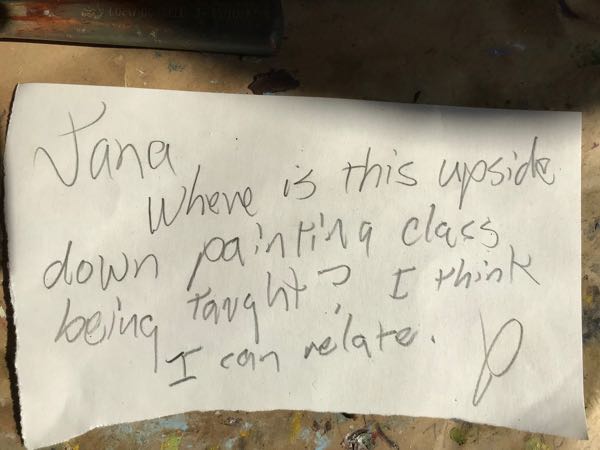 Jana
Where is this upside
down painting class
being taught? I think
I can relate.